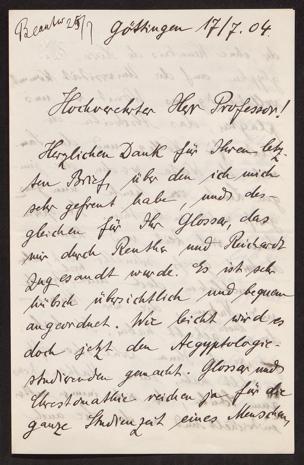 Beantw 25/7
Göttingen 17/7.04.
Hochverehrter Herr Professor!
Herzlichen Dank für Ihren letz-
ten Brief, über den ich mich
sehr gefreut habe, und des-
gleichen für Ihr Glossar, das
mir durch Reuther und Reichard
zugesandt wurde. Es ist sehr
hübsch übersichtlich und bequem
angeordnet. Wie leicht wird es
doch jetzt den Aegyptologie-
studierenden gemacht. Glossar und
Chrestomathie reichen ja für die
ganze Studienzeit eines Menschen,